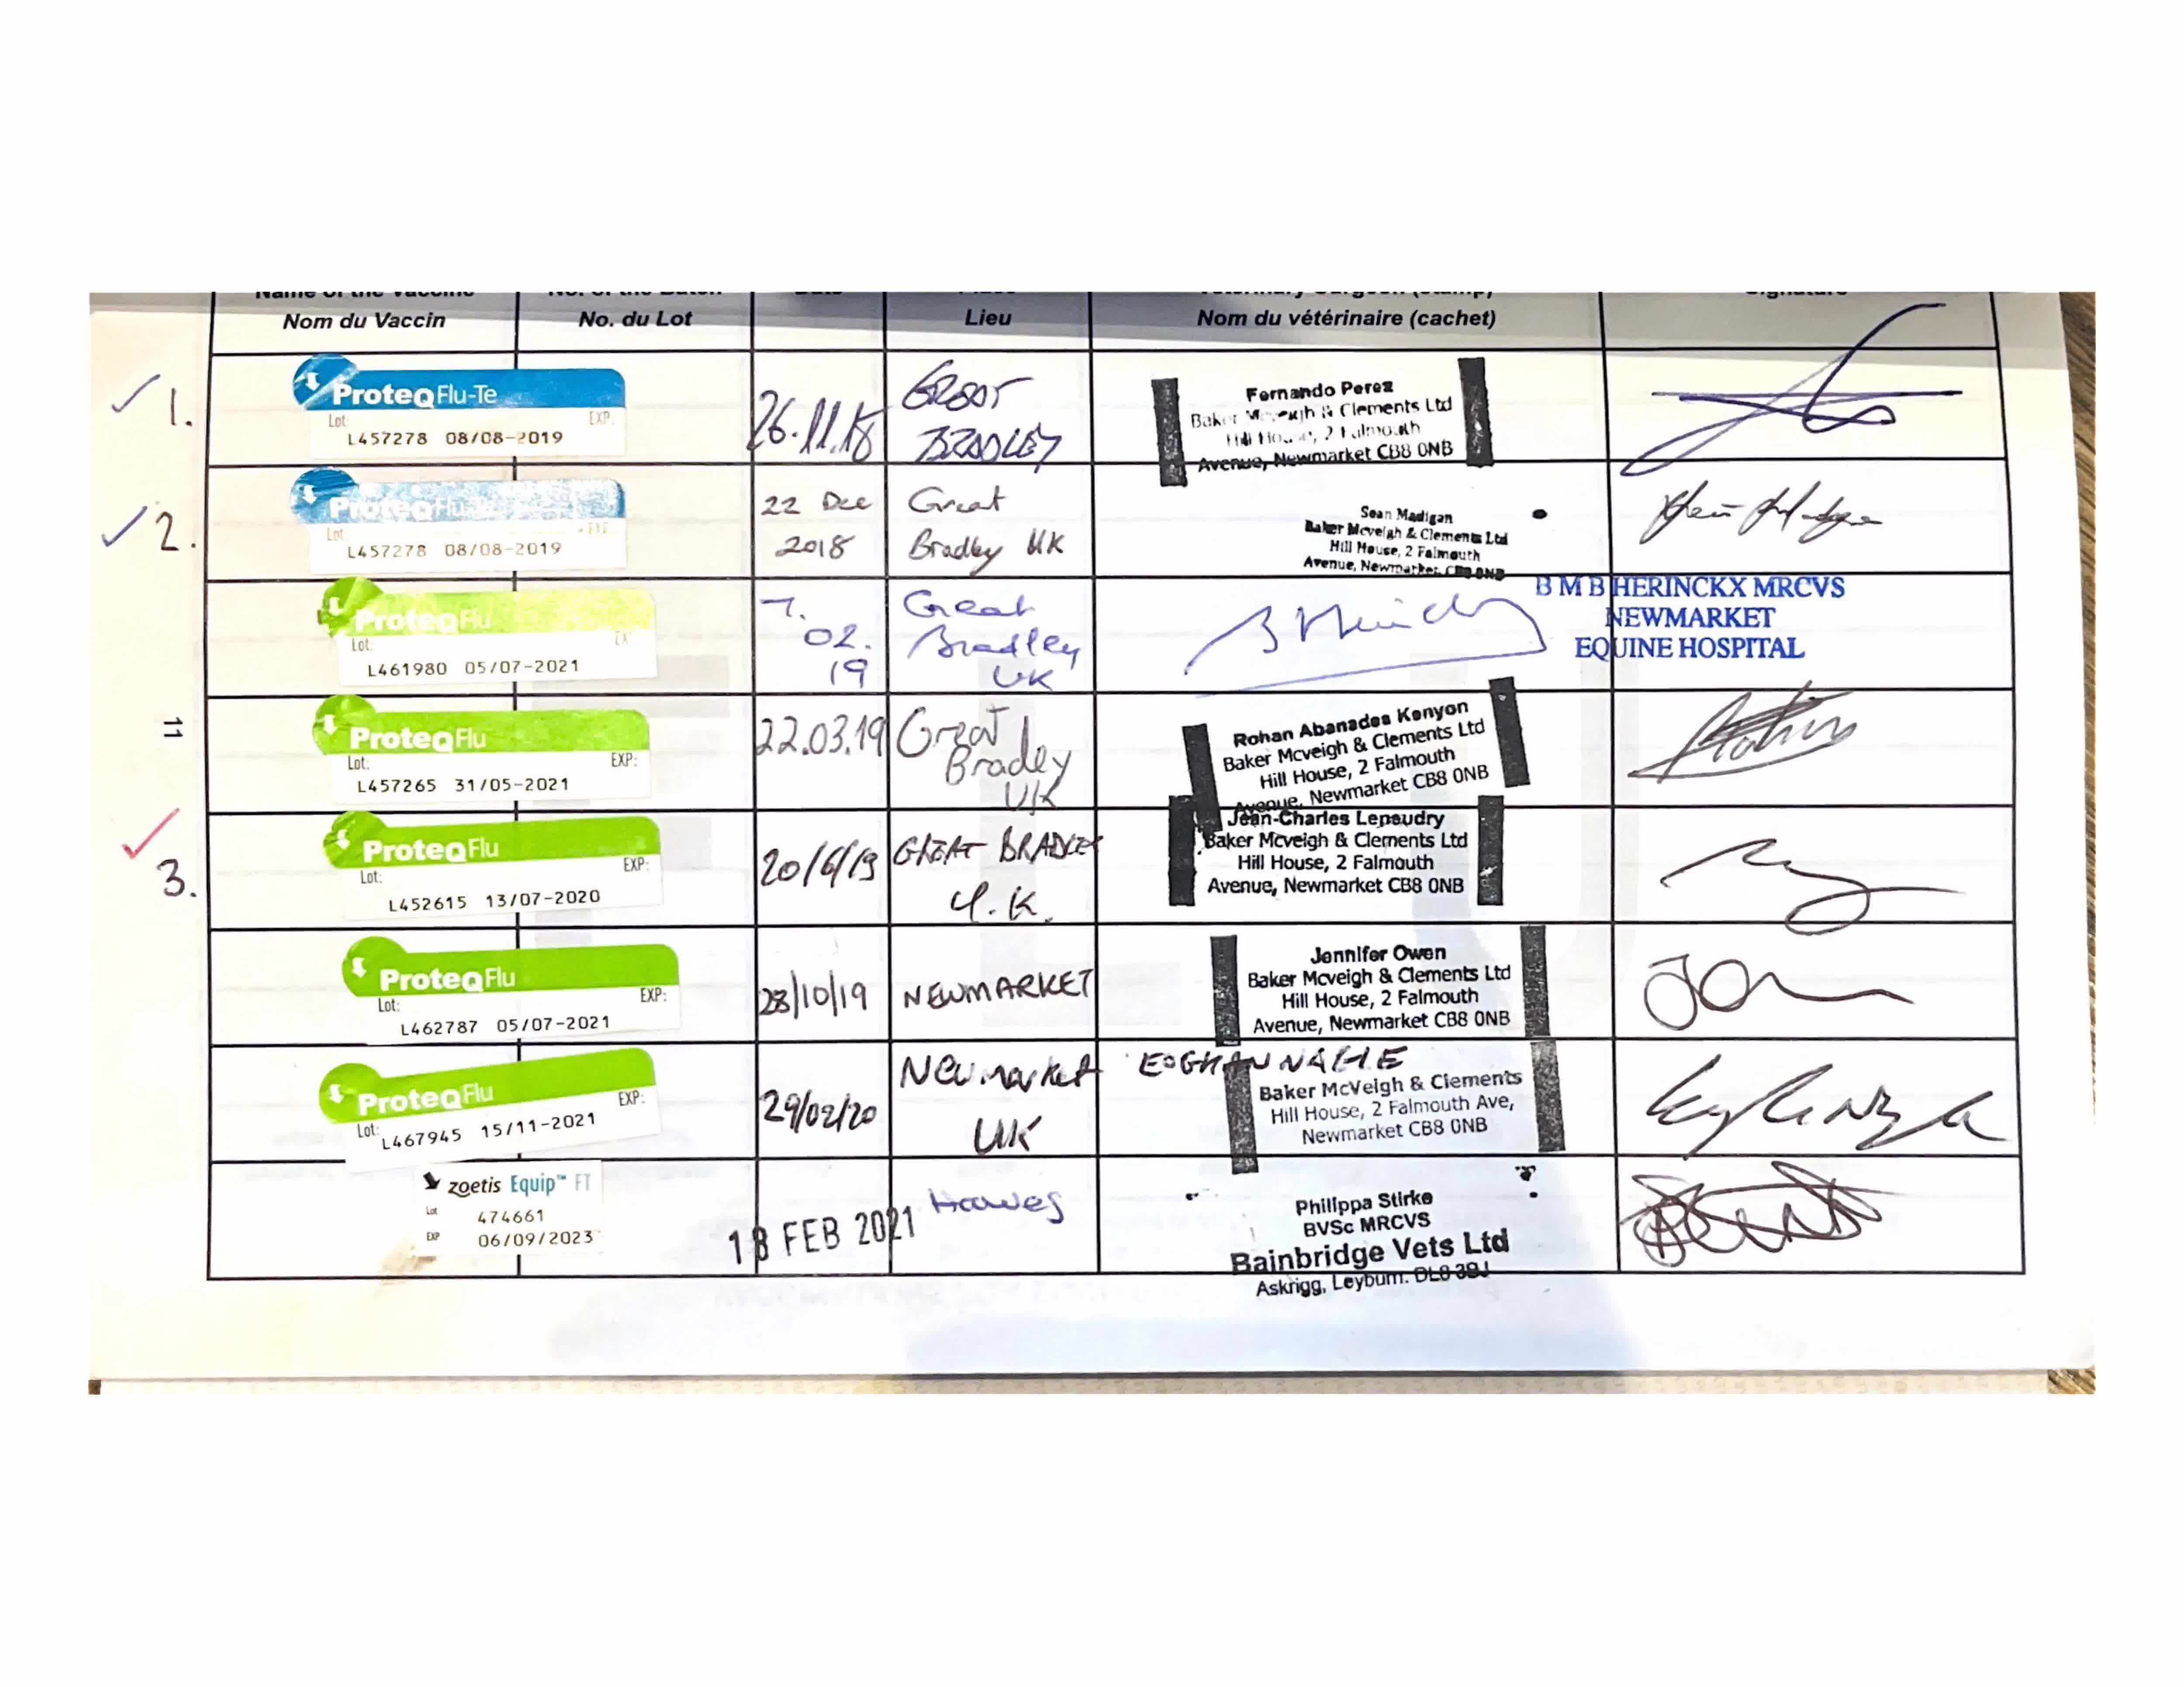 Name of the Vaccine No. of the Batch Date Place Veterinary Surgeon (stamp) Signature
Nom du Vaccin No. du Lot Lieu Nom du vétérinaire (cachet)
✓ 1.
ProteqFlu-Te
Lot: EXP:
L457278 08/08-2019
26.11.18
GREAT
BRADLEY
Fernando Perez
Baker Mcveigh & Clements Ltd
Hill House, 2 Falmouth
Avenue, Newmarket CB8 0NB
✓ 2.
ProteqFlu-Te
Lot EXP
L457278 08/08-2019
22 Dec
2018
Great
Bradley UK
Sean Madigan
Baker Mcveigh & Clements Ltd
Hill House, 2 Falmouth
Avenue, Newmarket, CB8 0NB
ProteqFlu
Lot: EX
L461980 05/07-2021
7.
02.
19
Great
Bradley
UK
B M B HERINCKX MRCVS
NEWMARKET
EQUINE HOSPITAL
11
ProteqFlu
Lot: EXP:
L457265 31/05-2021
22.03.19
Great
Bradley
UK
Rohan Abanades Kenyon
Baker Mcveigh & Clements Ltd
Hill House, 2 Falmouth
Avenue, Newmarket CB8 0NB
✓
3.
ProteqFlu
Lot: EXP:
L452615 13/07-2020
20/6/19
GREAT BRADLEY
U.K.
Jean-Charles Lepaudry
Baker Mcveigh & Clements Ltd
Hill House, 2 Falmouth
Avenue, Newmarket CB8 0NB
ProteqFlu
Lot: EXP:
L462787 05/07-2021
28/10/19
NEWMARKET
Jennifer Owen
Baker Mcveigh & Clements Ltd
Hill House, 2 Falmouth
Avenue, Newmarket CB8 0NB
ProteqFlu
Lot: EXP:
L467945 15/11-2021
29/02/20
Newmarket
UK
EOGHAN NAGLE
Baker McVeigh & Clements
Hill House, 2 Falmouth Ave,
Newmarket CB8 0NB
zoetis Equip™ FT
Lot 474661
EXP 06/09/2023
18 FEB 2021
Hawes
Philippa Stirke
BVSc MRCVS
Bainbridge Vets Ltd
Askrigg, Leyburn. DL8 3BJ